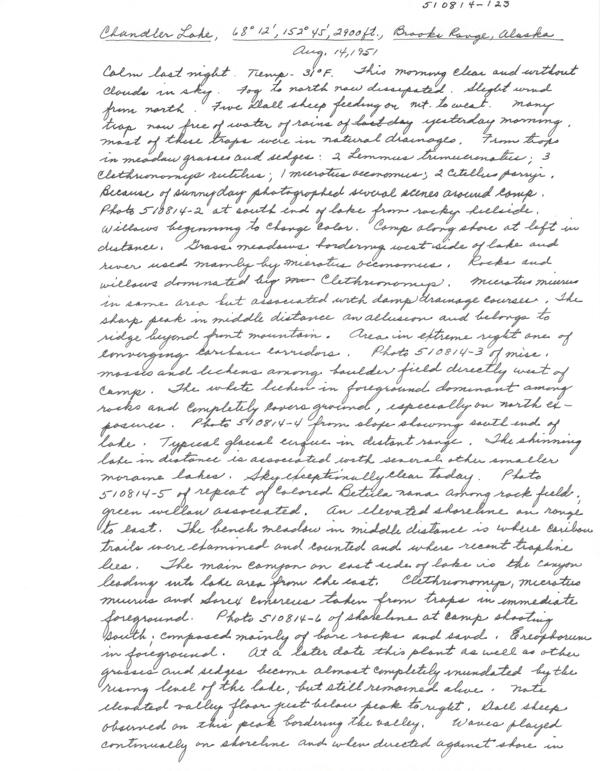 510814-123
Chandler Lake, 68° 12', 152° 45', 2900 ft., Brooks Range, Alaska
Aug. 14, 1951
Calm last night. Temp - 31°F. This morning clear and without
clouds in sky. Fog to north now dissipated. Slight wind
from north. Five Dall sheep feeding on mt. to west. Many
traps now free of water of rains of last day yesterday morning.
Most of these traps were in natural drainages. From traps
in meadow grasses and sedges: 2 Lemmus trimucronatus; 3
Clethrionomys rutilus; 1 microtus oeconomus; 2 Citellus parryi.
Because of sunny day photographed several scenes around camp.
Photo 510814-2 at south end of lake from rocky hillside.
Willows beginning to change color. Camp along shore at left in
distance. Grass meadows bordering west side of lake and
river used mainly by microtus oeconomus. Rocks and
willows dominated by Clethrionomys. Microtus miurus
in same area but associated with damp drainage courses. The
sharp peak in middle distance an allusion and belongs to
ridge beyond front mountain. Area in extreme right one of
converging caribou corridors. Photo 510814-3 of misc.
mosses and lichens among boulder field directly west of
camp. The white lichen in foreground dominant among
rocks and completely covers ground, especially on north ex-
posures. Photo 510814-4 from slope showing south end of
lake. Typical glacial cirque in distant range. The shinning
lake in distance is associated with several other smaller
moraine lakes. Sky exceptionally clear today. Photo
510814-5 of repeat of colored Betula nana among rock field,
green willow associated. An elevated shoreline on range
to east. The bench meadow in middle distance is where caribou
trails were examined and counted and where recent trapline
lies. The main canyon on east side of lake is the canyon
leading into lake area from the east. Clethrionomys, microtus
miurus and Sorex cinereus taken from traps in immediate
foreground. Photo 510814-6 of shoreline at camp shooting
south; composed mainly of bare rocks and sand. Ereophorum
in foreground. At a later date this plant as well as other
grasses and sedges become almost completely inundated by the
rising level of the lake, but still remained alive. Note
elevated valley floor just below peak to right. Dall sheep
observed on this peak bordering the valley. Waves played
continually on shoreline and when directed against shore in